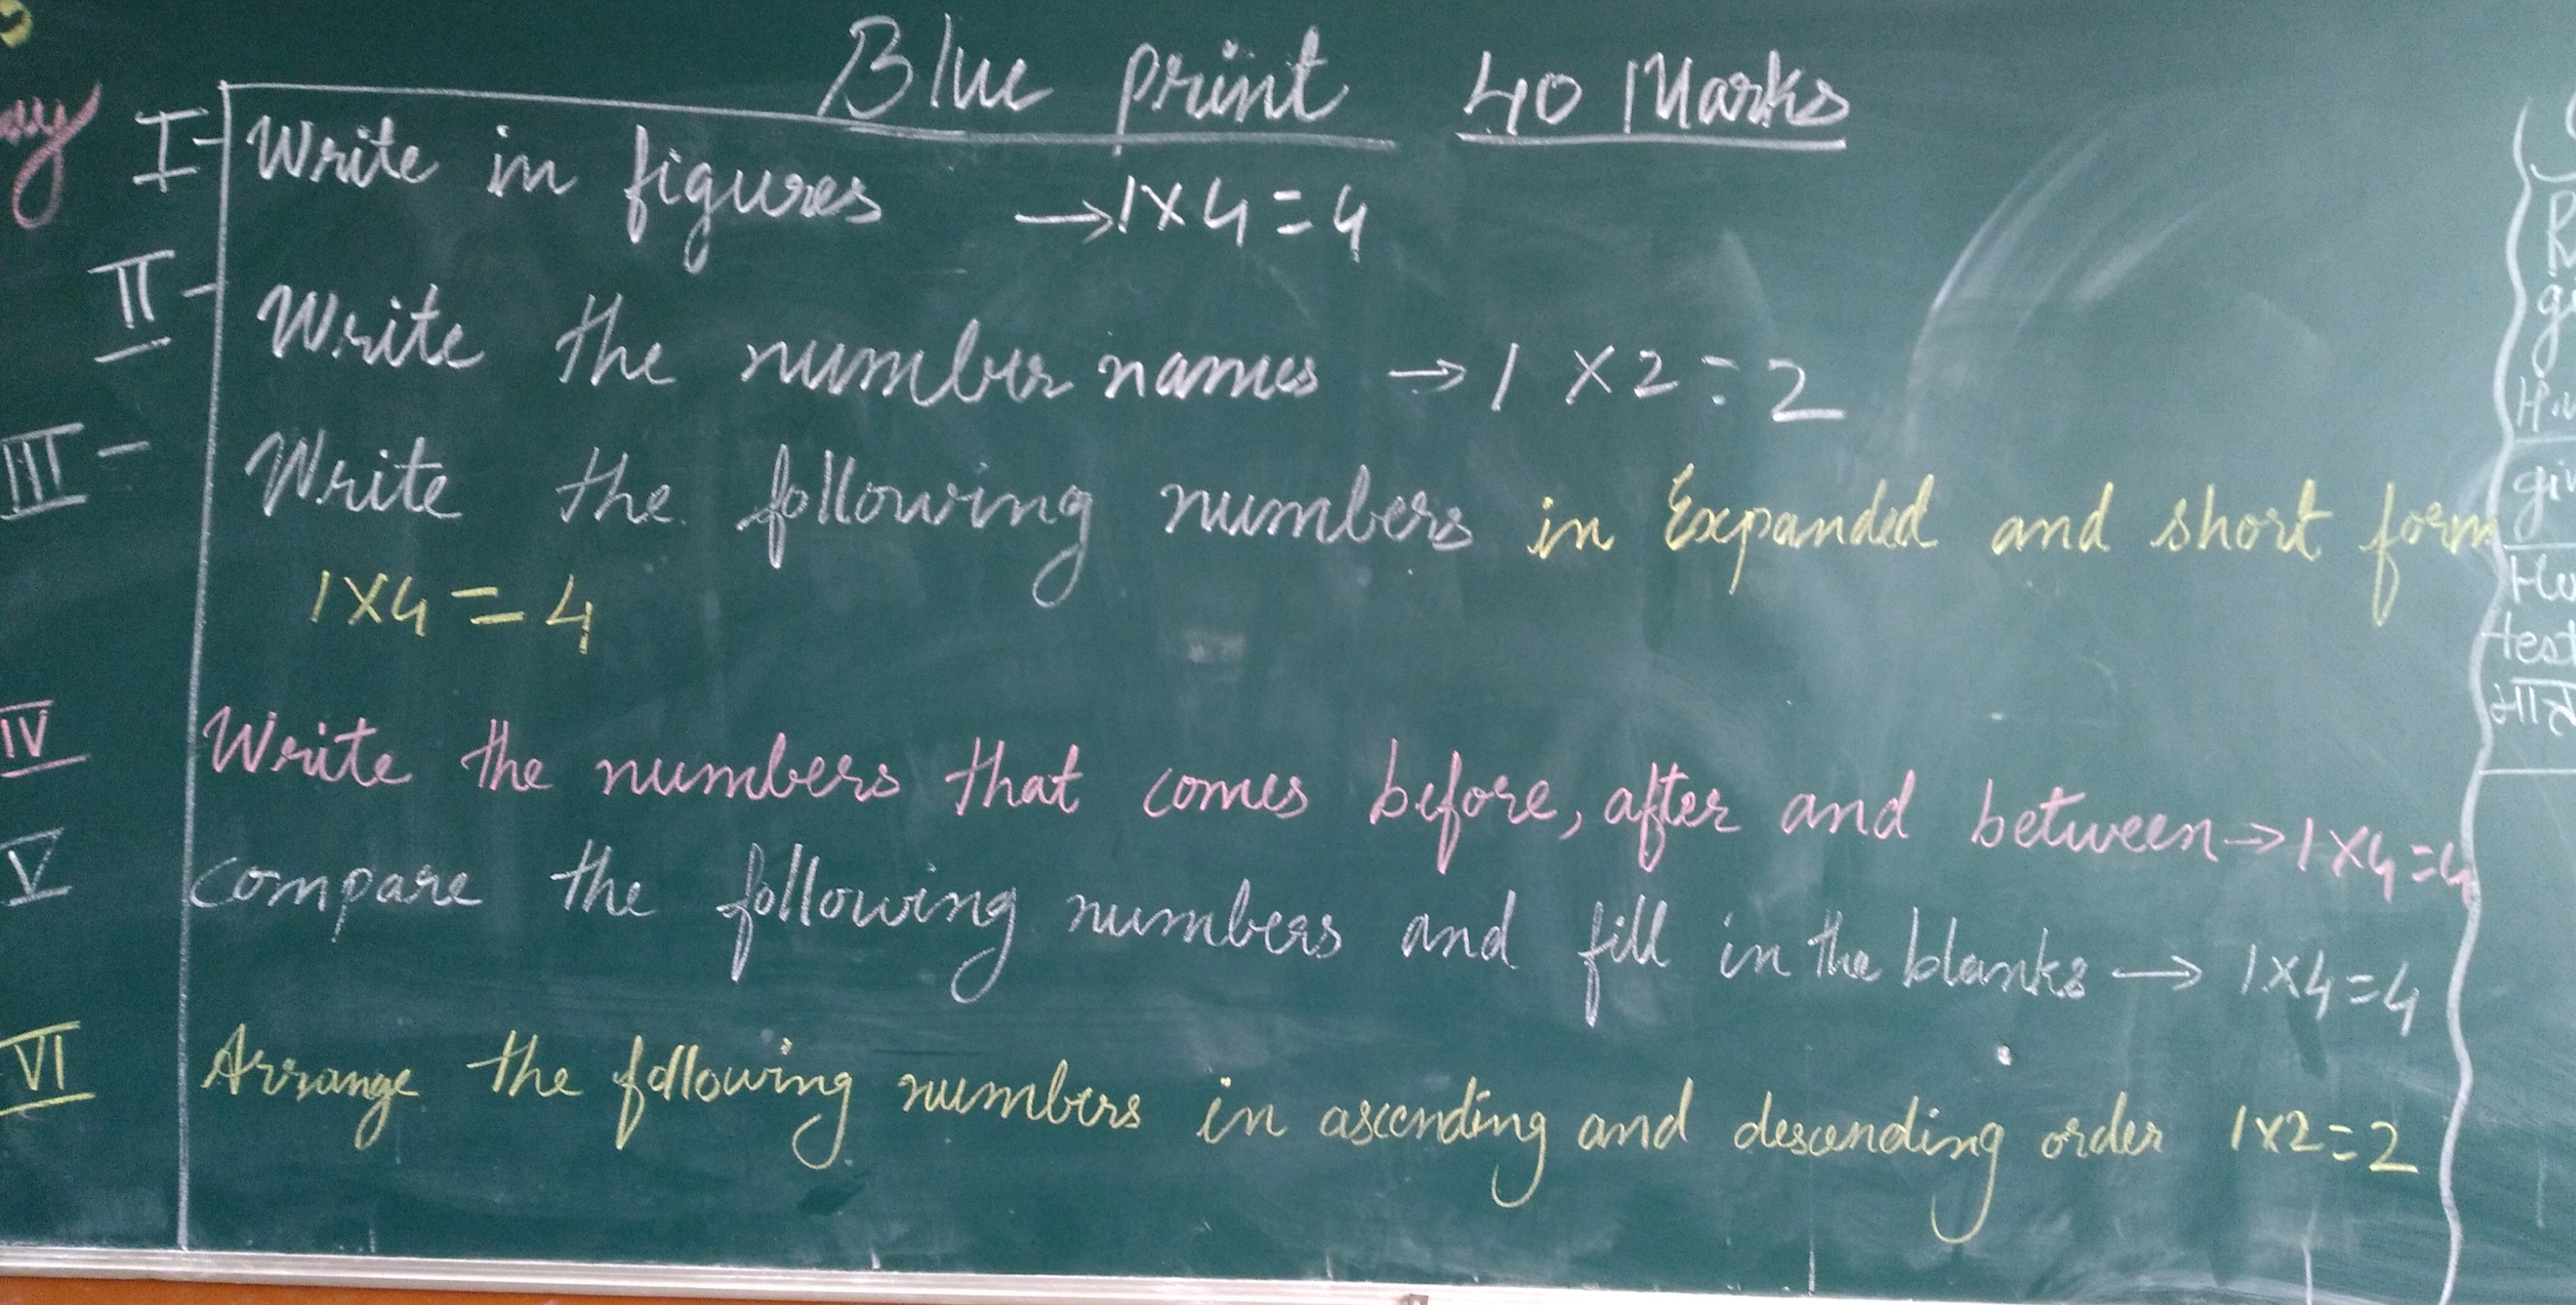 Blue print 40 Marks
I- Write in figures → 1×4=4
II- Write the number names → 1 ×2=2
III- Write the following numbers in Expanded and short form
1×4=4
IV Write the numbers that comes before, after and between → 1×4=4
V Compare the following numbers and fill in the blanks → 1×4=4
VI Arrange the following numbers in ascending and descending order 1×2=2
test